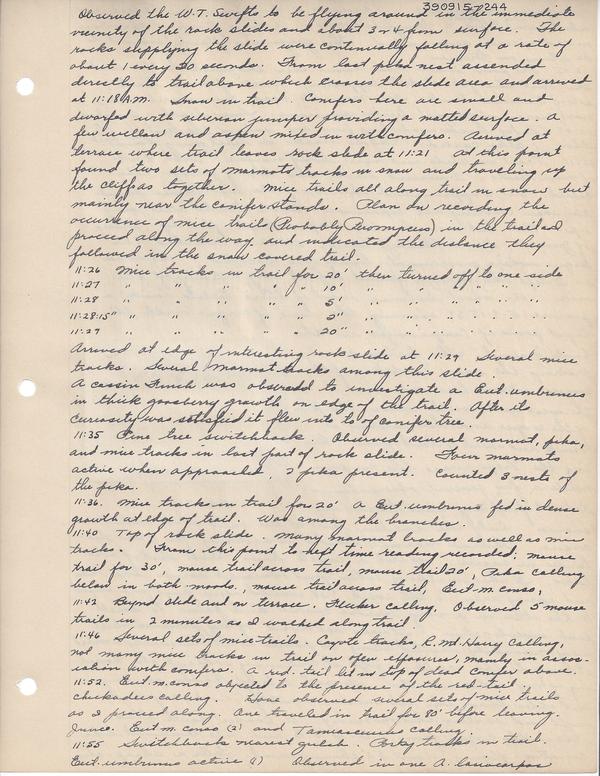 390915-244
Observed the W.T. Swifts to be flying around in the immediate
vicinity of the rock slides and about 3 or 4 from surface. The
rocks supplying the slide were continually falling at a rate of
about 1 every 20 seconds. From last pika nest assended
directly to trail above which crosses the slide area and arrived
at 11:18 A.M. Snow in trail. Conifers here are small and
dwarfed with siberian juniper providing a matted surface. A
few willow and aspen mixed in with conifers. Arrived at
terrace where trail leaves rock slide at 11:21 At this point
found two sets of marmots tracks in snow and traveling up
the cliff as together. Mice trails all along trail in snow but
mainly near the conifer stands. Plan on recording the
occurance of mice trails (Probably Peromyscus) in the trail as I
proceed along the way and indicated the distance they
followed in the snow covered trail.
11:26 Mice tracks in trail for 20' then turned off to one side
11:27 " " " " " 10' " " " " " "
11:28 " " " " " 5' " " " " " "
11:28:15" " " " " " 2" " " " " " "
11:29 " " " " " 20" " " " " " "
Arrived at edge of interesting rock slide at 11:29 Several mice
tracks. Several marmot tracks among this slide.
A cassin Finch was observed to investigate a Eut. umbrinus
in thick gooseberry growth on edge of the trail. After its
curiosity was satisfied it flew into to of conifer tree.
11:35 Pine tree switchback. Observed several marmot, pika,
and mice tracks in last part of rock slide. Four marmots
active when approached, 2 pika present. Counted 3 nests of
the pika.
11:36. Mice tracks in trail for 20' A Eut. umbrinus fed in dense
growth at edge of trail. Was among the branches.
11:40 Top of rock slide. Many marmot tracks as well as mice
tracks. From this point to next time reading recorded; mouse
trail for 30', mouse trail across trail, mouse trail 20', Pika calling
below in both woods, mouse trail across trail, Eut. m. conso,
11:42 Beynd slide and on terrace. Flicker calling. Observed 5 mouse
trails in 2 minutes as I walked along trail.
11:46 Several sets of mice trails. Coyote tracks, R. Mt. Hairy calling,
not many mice tracks in trail on open exposures, mainly in assoc-
iation with conifers. A red-tail lit in top of dead conifer above.
11:52. Eut. m. conso objected to the presence of the red-tail
chickadees calling. Have observed several sets of mice trails
as I proceed along. One traveled in trail for 80' before leaving.
Junco. Eut m. conso (2) and Tamiasciurus calling.
11:55 Switchback nearest gulch. Porky tracks in trail.
Eut. umbrinus active (1) Observed in one A. lasiocarpa